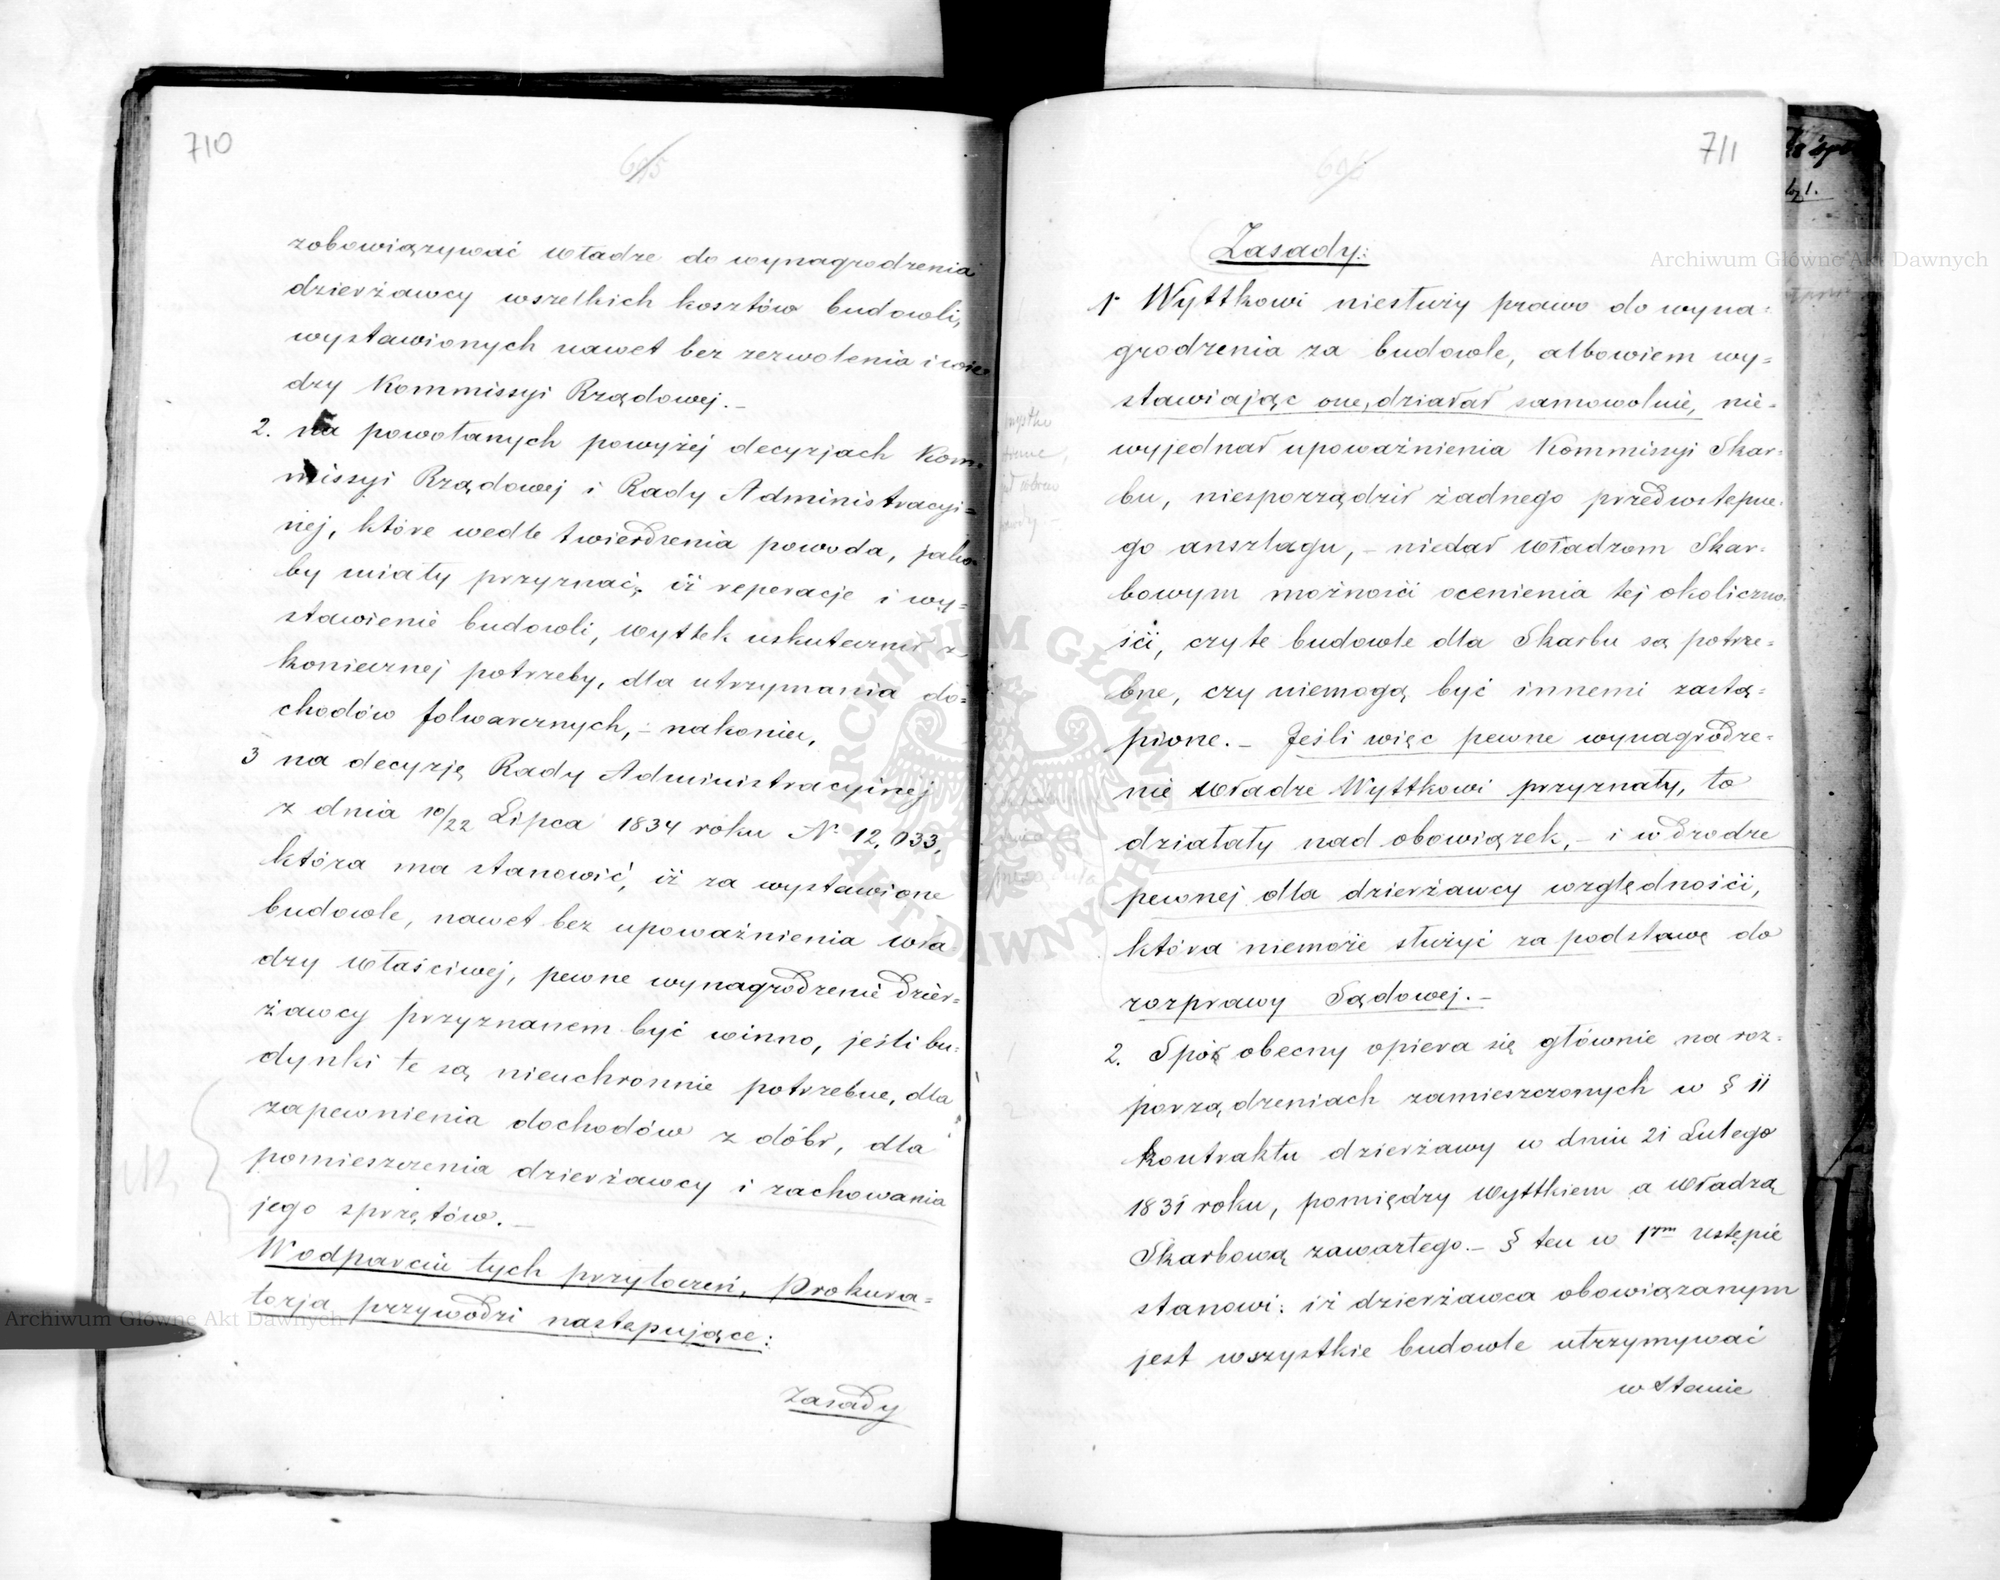 710
605
zobowiązywać władze do wynagrodzenia
dzierżawcy wszelkich kosztów budowli,
wystawionych nawet bez zezwolenia i wie
dzy Kommissyi Rządowej. –
2. na powołanych powyżej decyzjach Kom=
missyi Rządowej i Rady Administracyi=
nej, które wedle twierdzenia powoda, jako=
by miały przyznać, iż reperacje i wy=
stawienie budowli, Wyttek uskutecznił z
koniecznej potrzeby, dla utrzymania do=
chodów folwarcznych, – nakoniec,
3 na decyzję Rady Administracyjnej
z dnia 10/22 Lipca 1834 roku № 12,033,
która ma stanowić, iż za wystawione
budowle, nawet bez upoważnienia wła=
dzy właściwej, pewne wynagrodzenie dzier=
żawcy przyznanem być winno, jeśli bu=
dynki te są nieuchronnie potrzebne, dla
zapewnienia dochodów z dóbr, dla
pomieszczenia dzierżawcy i zachowania
jego sprzętów. –
W odparciu tych przytoczeń, Prokura=
torja przywodzi następujące:
Zasady
711
606
Zasady:
1. Wyttkowi niesłuży prawo do wyna=
grodzenia za budowle, albowiem wy=
stawiając one, działał samowolnie, nie=
wyjednał upoważnienia Kommissyi Skar=
bu, niesporządził żadnego przedwstępne=
go anszlagu, – niedał władzom Skar=
bowym możności ocenienia tej okoliczno=
ści, czy te budowle dla Skarbu są potrze=
bne, czy niemogą być innemi zastą=
pione. – Jeśli więc pewne wynagrodze=
nie władze Wyttkowi przyznały, to
działały nad obowiązek, – i w drodze
pewnej dla dzierżawcy względności,
która niemoże służyć za podstawę do
rozprawy Sądowej. –
2. Spór obecny opiera się głównie na roz=
porządzeniach zamieszczonych w § 11
kontraktu dzierżawy w dniu 21 Lutego
1831 roku, pomiędzy Wyttkiem a władzą
Skarbową zawartego. – § ten w 1ym ustępie
stanowi: iż dzierżawca obowiązanym
jest wszystkie budowle utrzymywać
w stanie
Archiwum Główne Akt Dawnych
Archiwum Główne Akt Dawnych
ARCHIWUM GŁÓWNE AKT DAWNYCH